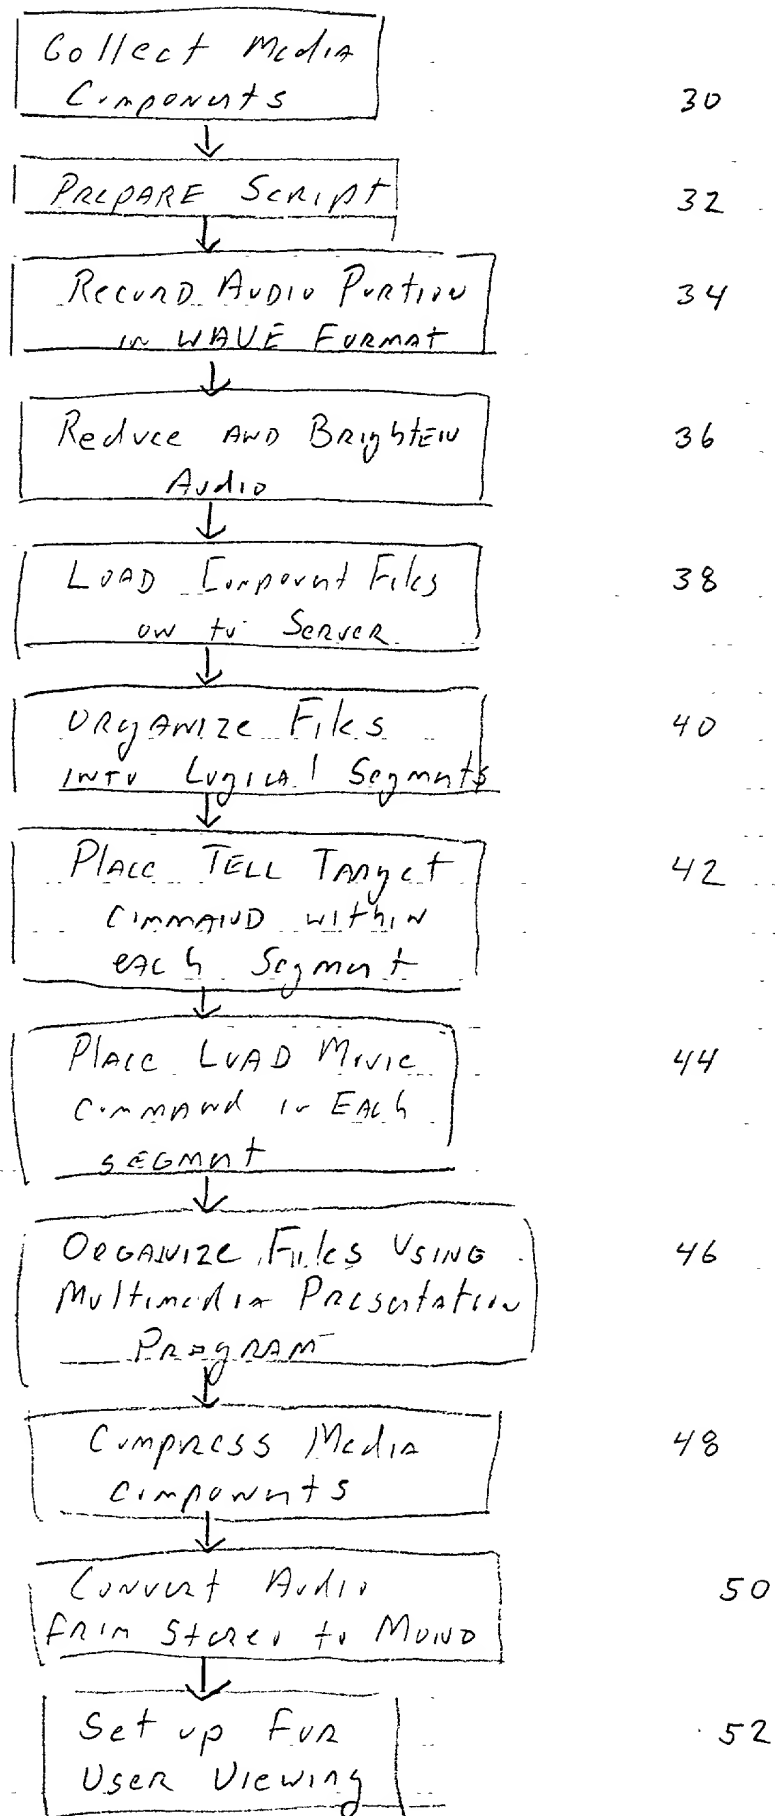 Collect Media
Components 30
PREPARE Script 32
RECORD AUDIO PORTION 34
in WAVE FORMAT
Reduce AND BrighTEN 36
Audio
LOAD Component Files 38
on to Server
ORgANize Files 40
INTO Logical Segments
Place TELL Target 42
COMMAND within
eACh Segment
Place LOAD Movie 44
COMMAND in EACh
SEGMent
ORGANIZE Files USING 46
Multimedia Presentation
PRogRAM
Compress Media 48
components
Convert Audio 50
From Stereo to MONO
Set up For 52
User Viewing